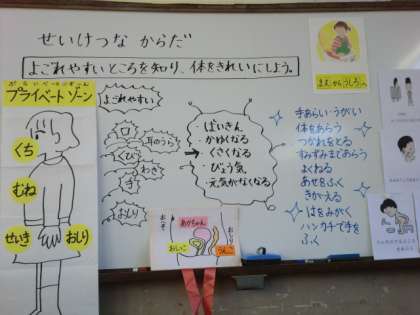 せいけつな からだ
よごれやすいところを知り、体をきれいにしよう。
プライベートゾーン
くち
むね
せいき
おしり
よごれやすい
口
耳のうら
くび
わき
手
おしり
・ばいきん
・かゆくなる
→・くさくなる
・びょうき
・元気がなくなる
手あらい・うがい
体をあらう
つかれをとる
すみずみまであらう
よくねる
あせをふく
きがえる
はをみがく
ハンカチで手を
ふく
あかちゃん
おしっこ
うんこ
おしり
まえからうしろへ